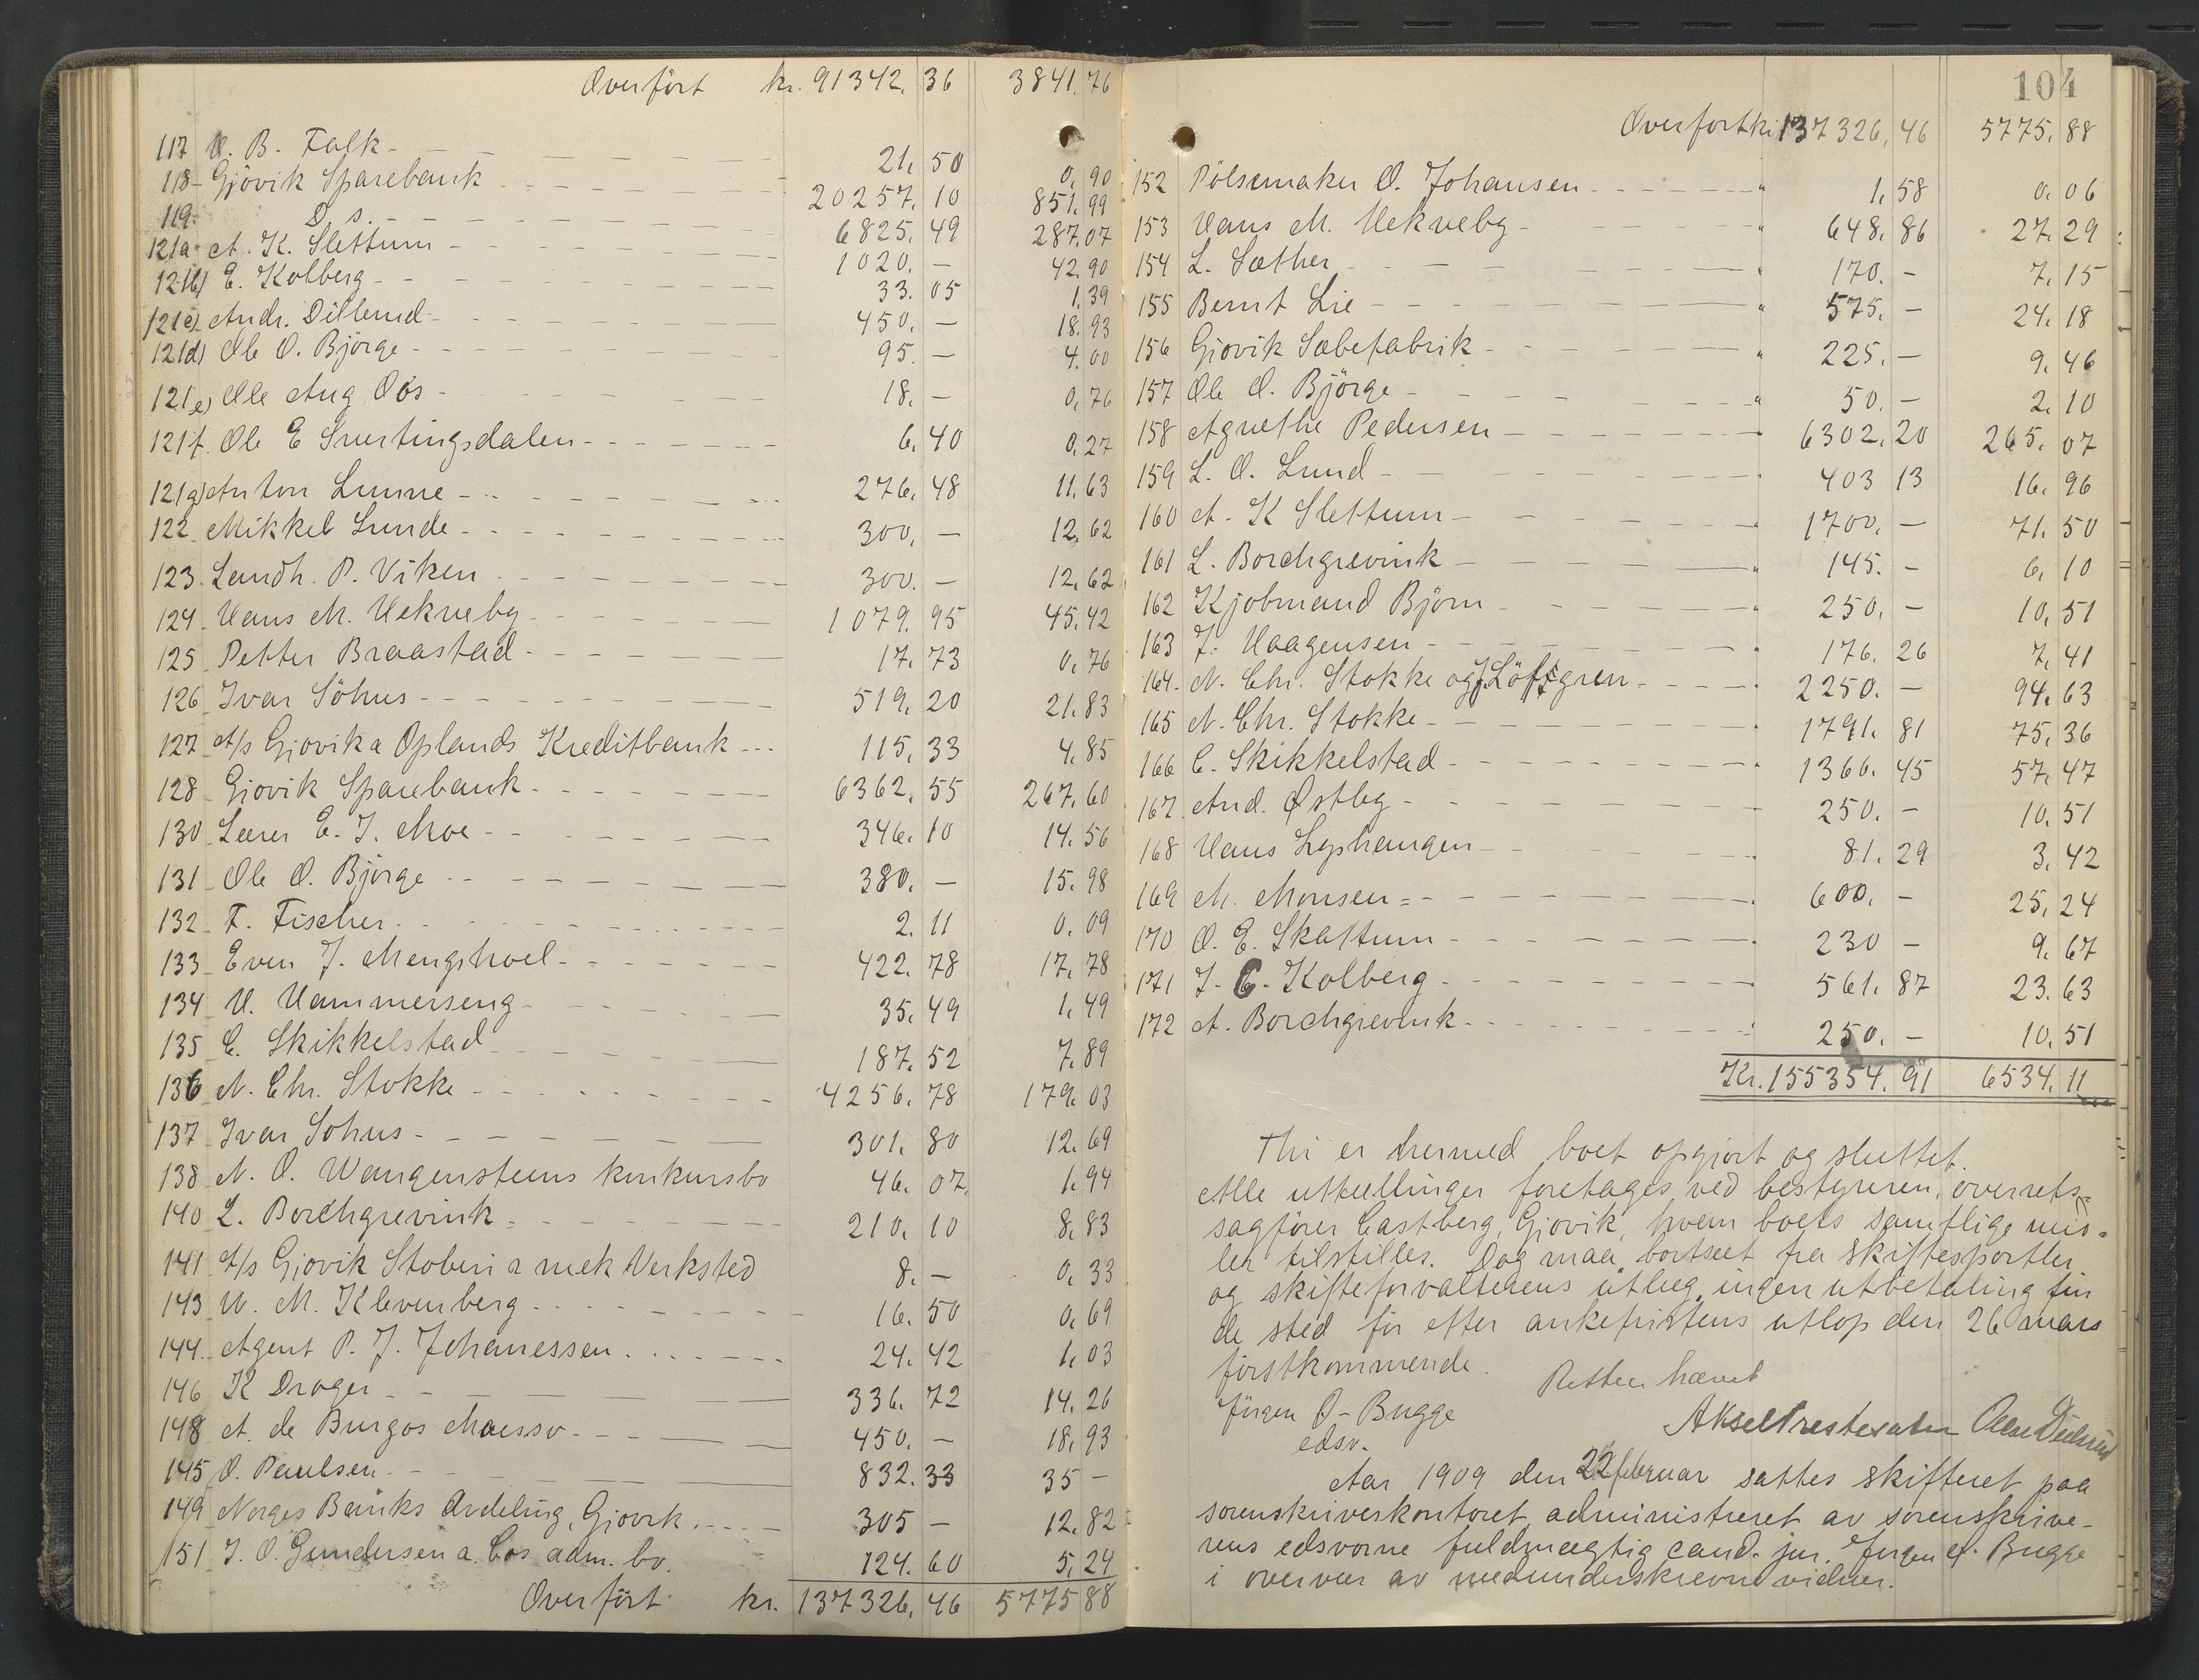 Overfört kr. 91342. 36 3841. 76
117 O. B. Falk - 21. 50 0. 90
118 - Gjövik Sparebank 20257. 10 851. 99
119 - D. s. - 6825. 49 287. 07
121a A. K. Slettum - 1020. - 42. 90
121b) E. Kolberg - 33. 05 1. 39
121c) Andr. Dillerud - 450. - 18. 93
121d) Ole O. Björge - 95. - 4. 00
121e) Ole Aug Oös - 18. - 0. 76
121f. Ole E Snertingsdalen - 6. 40 0. 27
121g) Anton Lunne - 276. 48 11. 63
122 Mikkel Lunde - 300. - 12. 62
123. Landh. P. Viken 300. - 12. 62
124 - Hans M. Hekneby 1079. 95 45. 42
125 Petter Braastad - 17. 73 0. 76
126 Ivar Söhus - 519. 20 21. 83
127 A/s Gjovik a Oplands Kreditbank - 115. 33 4. 85
128 - Gjovik Sparebank - 6362. 55 267. 60
130 Lærer E. J. Moe - 346. 10 14. 56
131 - Ole O. Björge - 380. - 15. 98
132 - F. Fischer. 2. 11 0. 09
133 Even J. Mengshoel - 422. 78 17. 78
134 H. Hammerseng - 35. 49 1. 49
135 C. Skikkelstad 187. 52 7. 89
136 N. Chr. Stokke - 4256. 78 179. 03
137 Ivar Sohus - 301. 80 12. 69
138 N. O. Wangensteens konkursbo 46. 07. 1. 94
140 L. Borchgrevink - 210. 10 8. 83
141 - A/s Gjovik Stoberi a mek Verksted 8. - 0. 33
143 H. M. Klevenberg - 16. 50 0. 69
144. Agent P. J. Johanessen. 24. 42 1. 03
146 K Droger - 336. 72 14. 26
148 A. de Burgos Maesso - 450. - 18. 93
145 O. Paulsen - 832. 33 35 -
149 Norges Banks Avdeling, Gjovik. 305 - 12. 82
151 J. O. Gundersen a. Cos adm. bo. 124. 60 5. 24
Overfört kr. 137326. 46 5775 88
104
Overfort kr 137326, 46 5775. 88
152 Pölsemaker O. Johansen - 1. 58 0. 06
153 Hans M. Hekneby - 648. 86 27. 29
154 L. Sæther - 170. - 7. 15
155 Bernt Lie - 575. - 24. 18
156 Gjovik Sæbefabrik - 225. - 9. 46
157 Ole O. Björge - 50. - 2. 10
158 Agnethe Pedersen - 6302. 20 265. 07
159 L. O. Lund - 403 13 16. 96
160 A. K Slettum - 1700. - 71. 50
161 L. Borchgrevink - 145. - 6. 10
162 Kjobmand Björn - 250. - 10. 51
163 J. Haagensen - 176. 26 7. 41
164. N. Chr. Stokke og J Löfsgren - 2250. - 94. 63
165 N. Chr. Stokke - 1791. 81 75. 36
166 C. Skikkelstad - 1366. 45 57. 47
167. And. Østby - 250. - 10. 51
168 Hans Lyshaugen - 81. 29 3. 42
169 M. Monsen - 600. - 25. 24
170 O. E. Skattum - 230 - 9. 67
171 J. C. Kolberg - 561. 87 23. 63
172 A. Borchgrevink - 250. - 10. 51
Kr. 155354. 91 6534. 11
Thi er hermed boet opgjort og sluttet.
Alle uttællinger foretages ved bestyreren, overrets-
sagförer Castberg, Gjovik, hvem boets samtlige mid-
ler tilstilles. Dog maa, bortseet fra skiftesportler
og skifteforvalterens utlæg, ingen utbetaling fin
de sted för efter ankefristens utlop den 26 mars
förstkommende. Retten hævet
Jörgen A. Bugge
edsv.
Aar 1909 den 22 februar sattes skifteret paa
sorenskriverkontoret administreret av sorenskrive-
rens edsvorne fuldmægtig cand. jur. Jörgen A. Bugge
i overvær av medunderskrevne vidner.